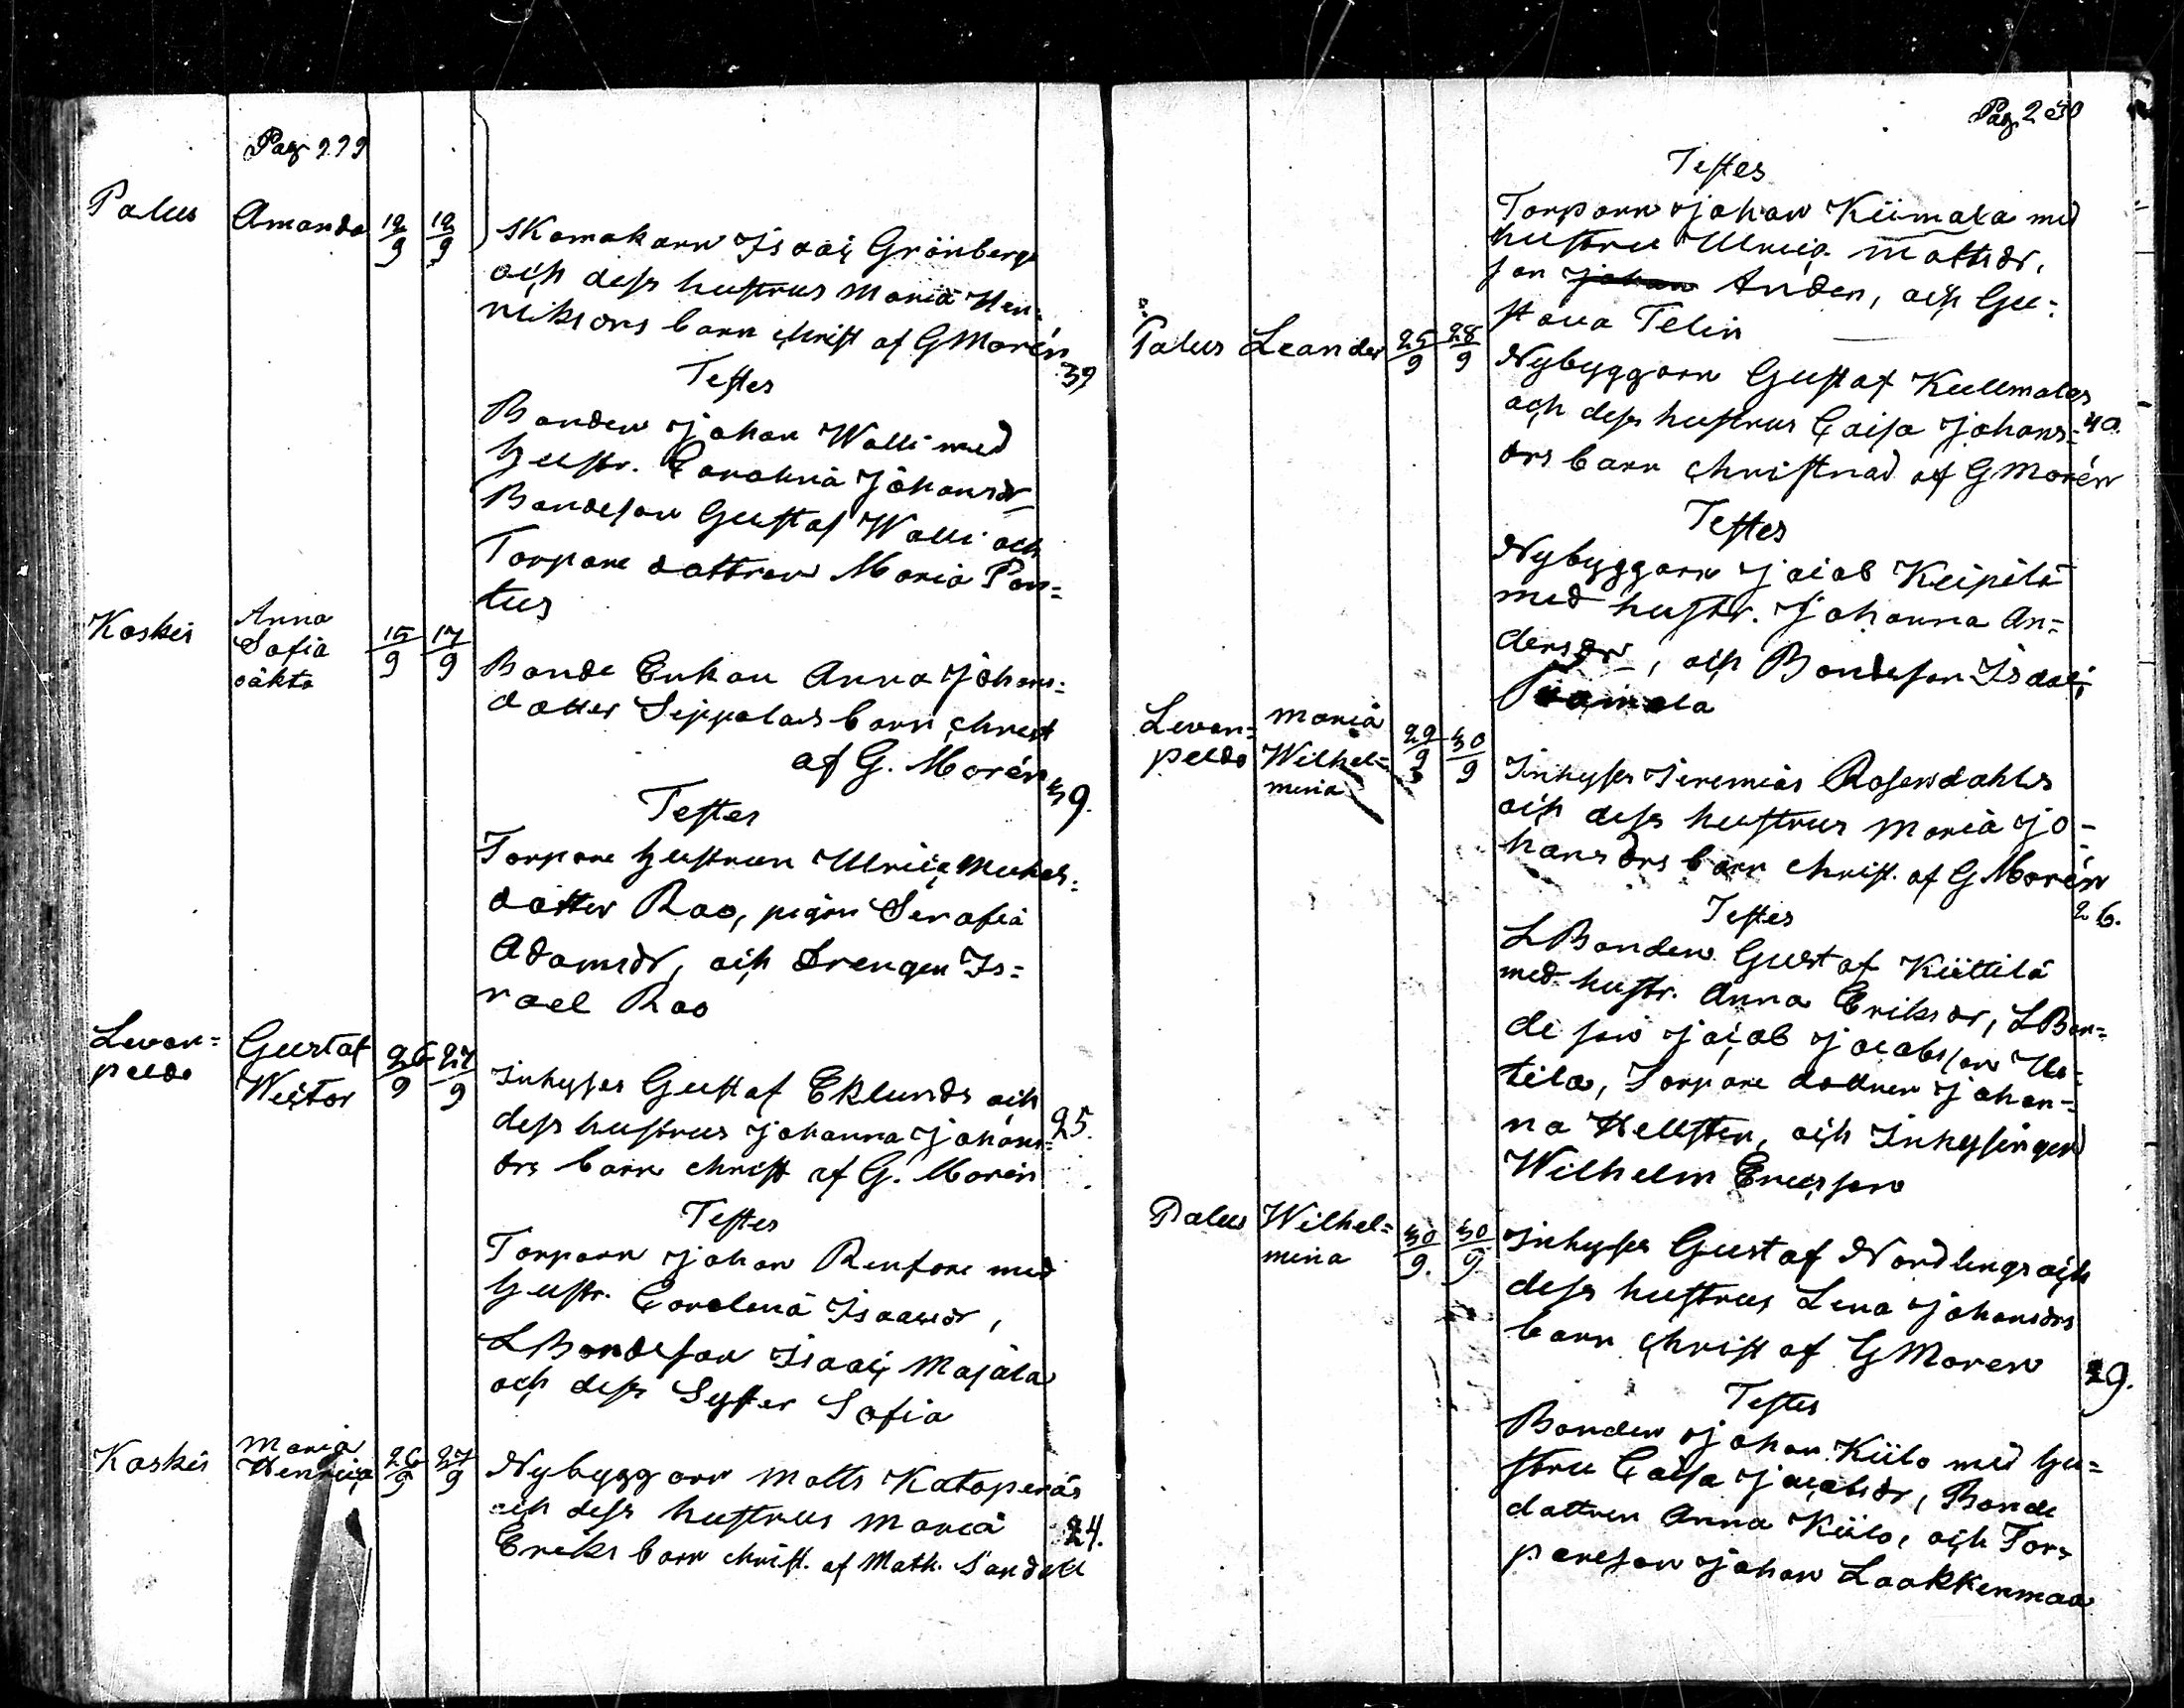 Pag 229
Palus Amanda 12/9 12/9 Skomakarn Isaac Grönbergs
och dess hustrus Maria Hen=
riksdrs barn christ af G Morén 39
Testes
Bonden Johan Walli med
Hustr. Carolina Johansdr
Bondeson Gustaf Walli och
Torpare dottren Maria Pon=
tus
Koskis Anna Sofia oäkta 15/9 17/9
Bonde Enkan Anna Johans=
dotter Seppalas barn christ
af G. Morén 39.
Testes
Torpare Hustrun Ulrica Michels=
dotter Rao, pigan Serafia
Adamsdr, och Drengen Is=
rael Rao
Levon=peldo Gustaf Victor 26/9 27/9
Inhyses Gustaf Eklunds och
dess hustrus Johanna Johans= 25.
drs barn christ af G. Morén
Testes
Torparn Johan Renfors med
Hustr. Carolina Isaacsdr,
L Bondeson Isaac Majala
och dess Syster Sofia
Koskis Maria Henrica 26/9 27/9 Nybyggarn Matts Katopenäs
och dess hustrus Maria 24.
Eriks barn christ. af Math. Sandell
Pag. 230
Testes
Torparn Johan Kiimala med
hustru Ulrica Mattsdr,
son Johan Anders, och Gu=
stava Telin
Palus Leander 25/9 28/9 Nybyggarn Gustaf Kullmalas
och dess hustrus Caisa Johans= 40.
drs barn christnad af G Morén
Testes
Nybyggarn Jacob Keipilä
med hustr. Johanna An=
dersdr, och Bondeson Isaac
Levon=peldo Maria Wilhel=mina 29/9 30/9
Inhyses Jeremias Rosendahls
och dess hustrus Maria Jo=
hansdrs barn christ. af G Morén
26.
Testes
L Bonden Gustaf Kiittilä
med hustr. Anna Eriksdr, L Bon=
de son Jacob Jacobsson Un=
tila, Torpare dottren Johan=
na Hellsten, och Inhysingen
Wilhelm Ericsson
Palus Wilhel=mina 30/9. 30/9. Inhyses Gustaf Nordlings och
dess hustrus Lena Johansdrs
barn christ af G Moren 29.
Testes
Bonden Johan Kiilo med Hu=
stru Caisa Jacobsdr, Bonde
dottren Anna Kiilo, och Tor=
pareson Johan Laakkenmaa